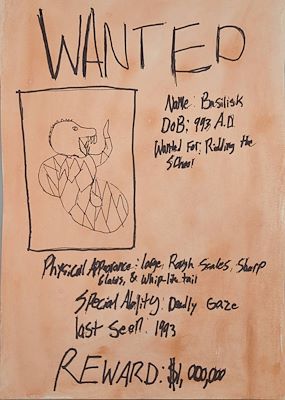 WANTED
Name: Basilisk
DoB: 993 A.D.
Wanted For: Ridding the
School
Physical Appearance: Large, Rough Scales, Sharp
& Whip-like tail
Special Ability: Deadly Gaze
last Seen: 1993
REWARD: $1,000,000